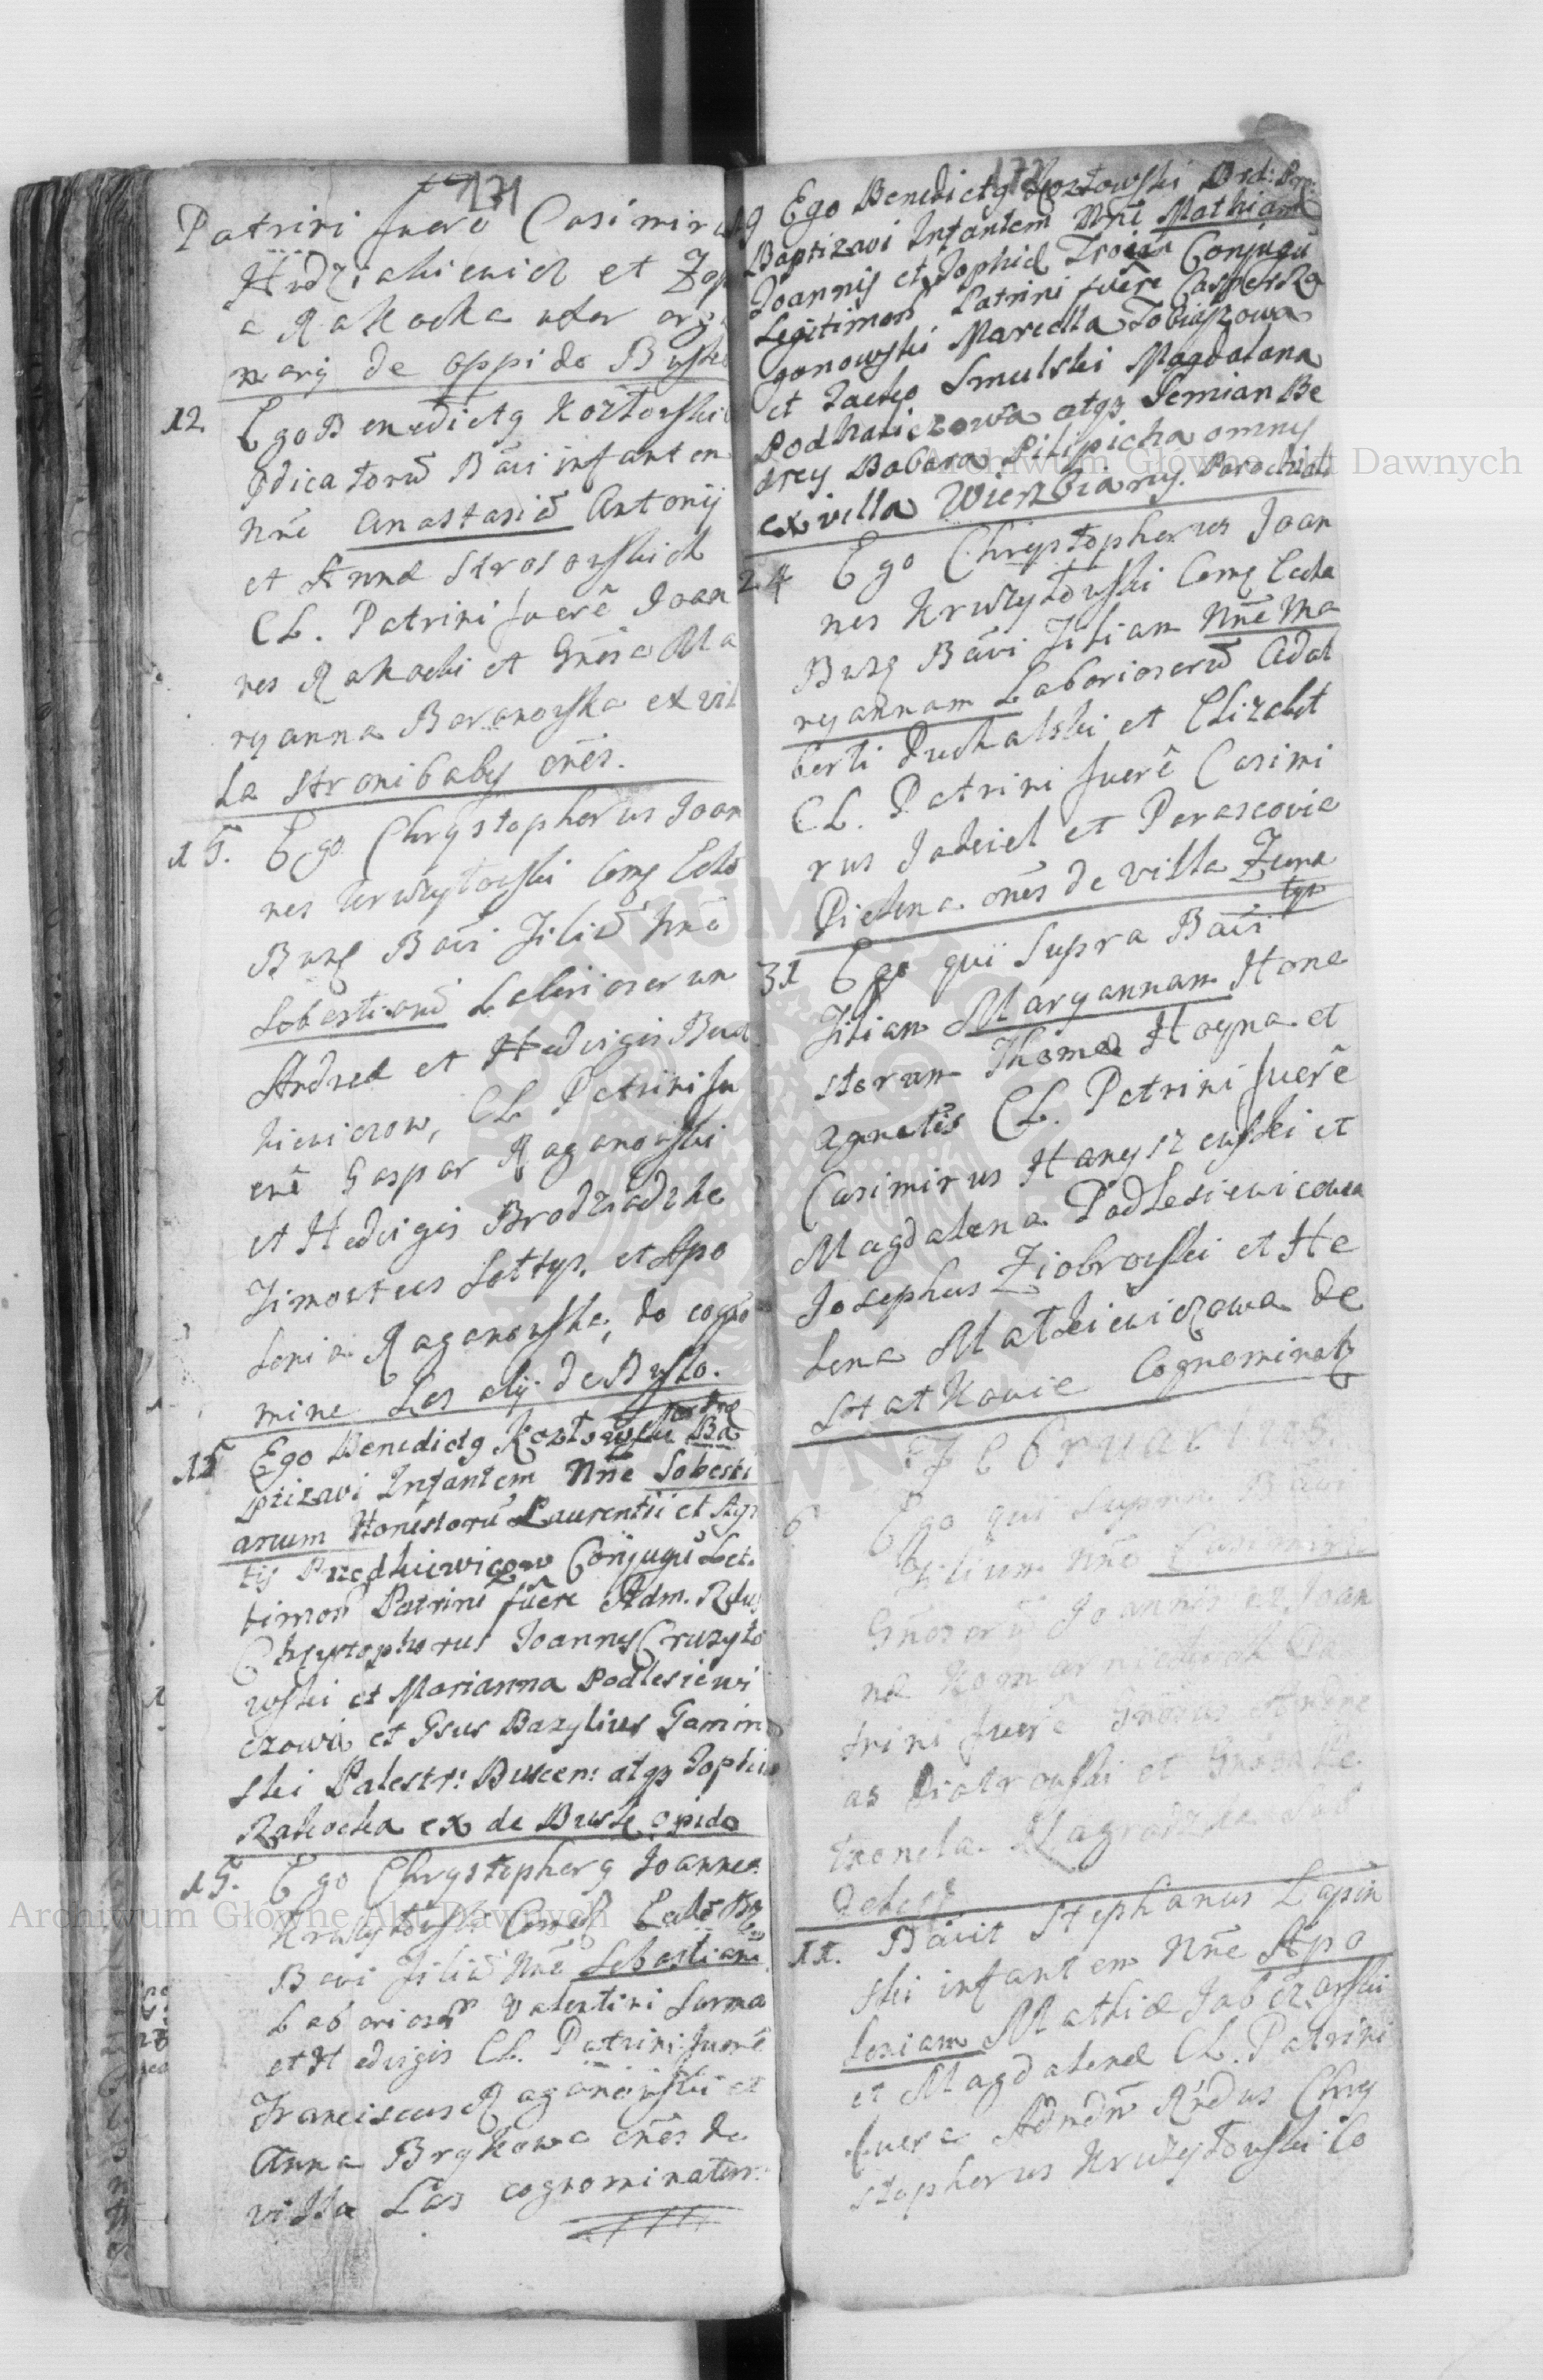 131
Patrini fuere Casimirus
Hudziakiewicz et Zop
a Rakocka uxor orga
narij de oppido Busko
12 Ego Benedictg Kozłowski
pdicatorū Bavi infantem
Nñe Anastasiā Antonij
et Annæ Strosowskich
CL. Patrini fuerē Joan
nes Rakocki et Gnosa Ma
ryanna Baranowska ex vil
la Stronibaby onēs.
15. Ego Chrystopherus Joan
nes Kruszytowski Comg Eccle
Busg Bavi filiū Nnē
Sobestianū Laboriosorum
Andreæ et Hedvigis Bud
kiewiczow, CL Patrini fu
erē Gaspar Raganowski
et Hedvigis Brodziadzke
Timoteus Sottys, et Apo
lonia Raganowska, do cogno
mine Les alij de Busko.
15 Ego Benedictg Kozłowski Ba
ptizavi Infantem Nñe Sobesti
anum Honestorū Laurentii et Agn
tis Przedkiewiczow Conjugū Leti
timor Patrini fuere Adm. Rdus
Chrystophorus Joannes Cruszyto
wski et Marianna Podlesiewi
czowa et Gsus Bazylius Gamin
ski Palestr: Buscen: atqz Zophia
Rakocka ex de Busk opido
15. Ego Chrystopherg Joannes
Kruszytowski Comg Eccle Bg
Bavi filiū Nnē Sebastianū
Laboriosor Valentini Surma
et Hedvigis CL. Patrini fuerē
Franciscus Raganowski et
Anna Brykowa onēs de
villa Las cognominatur.
19 Ego Benedictg Kozłowski Ord: Pre:
Baptizavi Infantem Nñe Mathiam
Joannis et Zophiæ Troian Conjugū
Legitimor Patrini fuere Casper Ra
ganowski Marella Tobiaszowa
et Jacko Smulski Magdalana
Podhaliczowa atqz Semian Be
drey Babara Pilipicha omnes
ex villa Wierzbiany. Parochiali
24 Ego Chrystopherus Joan
nes Kruszytowski Comg Eccle
Busg Bāvi filiam Nñe Ma
ryannam Laboriosorū Adal
berti Puchalski et Elizabet
CL. Patrini fuerē Casimi
rus Jadziel et Parascovia
Dielena onēs de villa Zura
tyn
31 Ego qui supra Bavi
filiam Maryannam Hone
storum Thomæ Hoyna et
Agnetis CL. Patrini fuerē
Casimirus Hanyszewski et
Magdalena Podlesiewicowa
Josephus Ziobrowski et He
lena Matkiewiczowa de
Statkowie Cognominatg
Februarius
6 Ego qui supra Bavi
filium Nñe Casimirū
Gñosorū Joannis et Joan
næ Komarnickich Pa
trini fuerē Gnosus Andre
as Piotrowski et Gnosa Pe
tronela Nagrodzka
11. Bāvit Stephanus Lapin
ski infantem Nñe Apo
loniam Mathiæ Jabczarski
et Magdalenæ CL. Patrini
fuere Admdm Rndus Chry
stopherus Kruszytowski Co